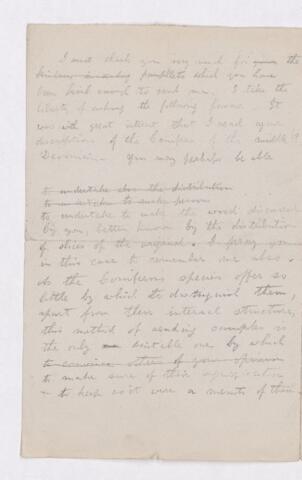 I must thank you very much for the
kindness in sending pamphlets which you have
been kind enough to send me. I take the
liberty of asking the following favour. It
was with great interest that I read your
description of the Conifers of the middle
Devonian. You may perhaps be able
to undertake also the distribution
to undertake to make
to undertake to make the wood discovered
by you, better known by the distribution
of slices of the original. I pray you
in this case to remember me also.
As the Coniferous species offer so
little by which to distinguish them,
apart from their internal structure,
this method of sending samples is
the only suitable one by which
to convince others of your opinion
to make sure of their
to keep as it were a of them